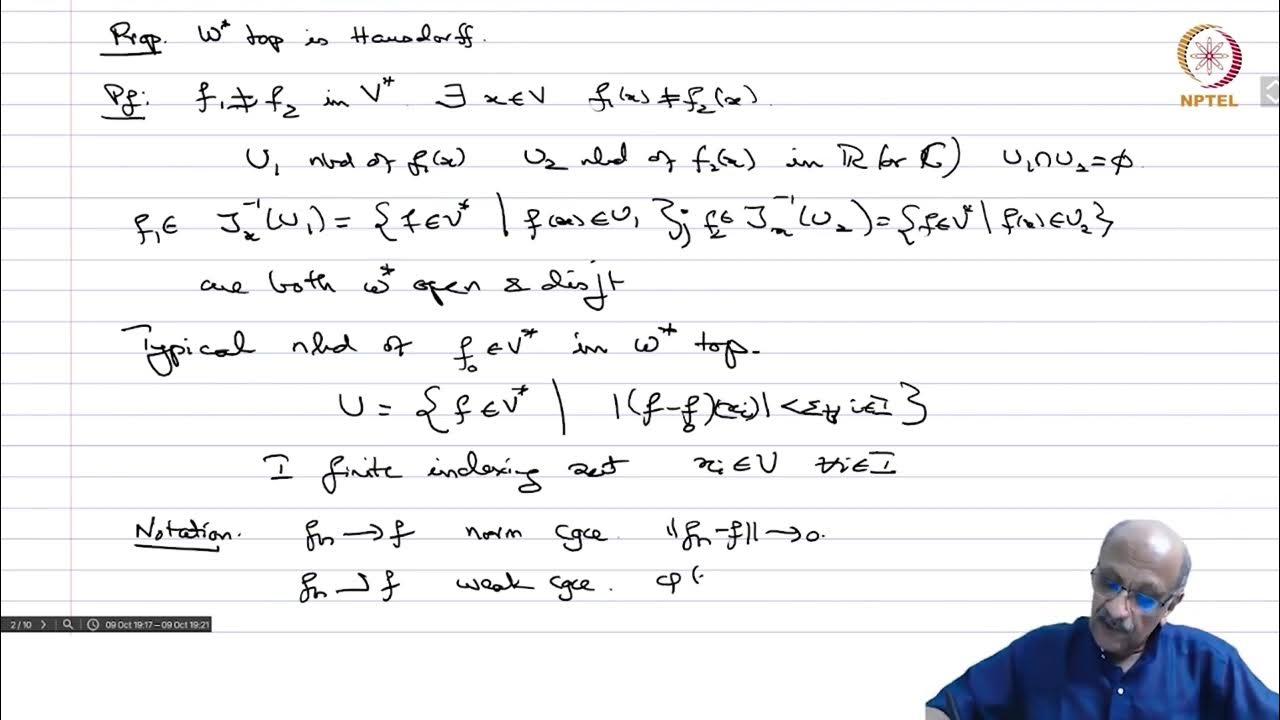 Prop. W* top is Hausdorff.
NPTEL
Pf: f₁ ≠ f₂ in V* ∃ x ∈ V f₁(x) ≠ f₂(x).
U₁ nbd of f₁(x) U₂ nbd of f₂(x) in ℝ (or ℂ) U₁ ∩ U₂ = φ.
f₁ ∈ J_x⁻¹(U₁) = {f ∈ V* | f(x) ∈ U₁}; f₂ ∈ J_x⁻¹(U₂) = {f ∈ V* | f(x) ∈ U₂}
are both w* open & disjt
Typical nbd of f₀ ∈ V* in w* top.
U = {f ∈ V* | |(f-f₀)(xᵢ)| < ε ∀ i ∈ I}
I finite indexing set xᵢ ∈ V ∀ i ∈ I
Notation. fₙ → f norm cgce. ‖fₙ - f‖ → 0.
fₙ ⇀ f weak cgce. φ(
2 / 10 09 Oct 19:17 – 09 Oct 19:21